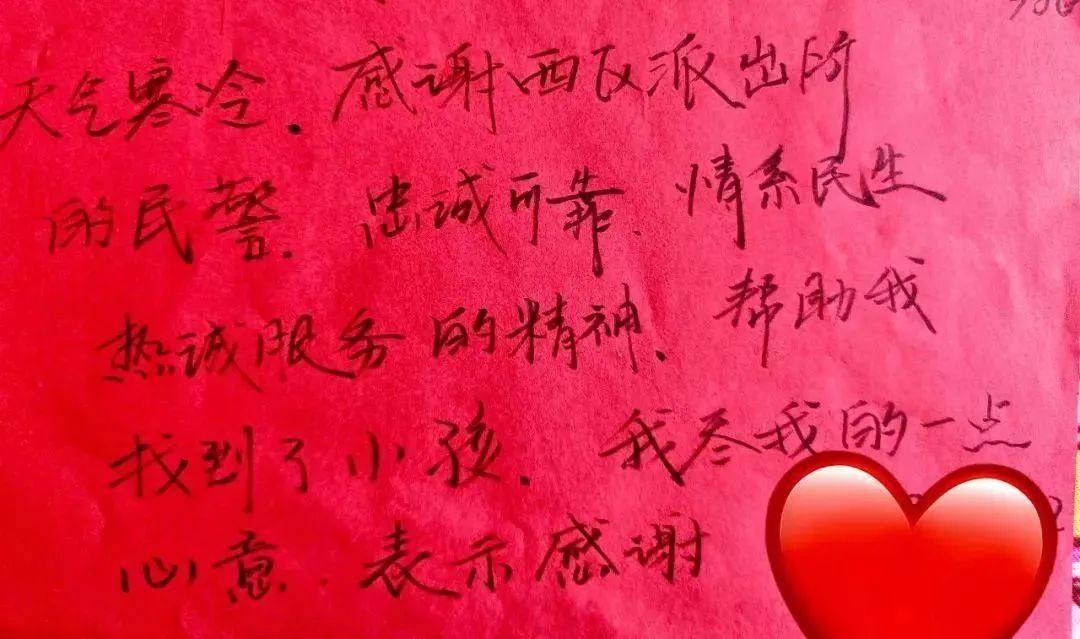 天气寒冷.感谢西瓦派出所
的民警.忠诚可靠.情系民生
热诚服务的精神.帮助我
找到了小孩.我尽我的一点
心意.表示感谢